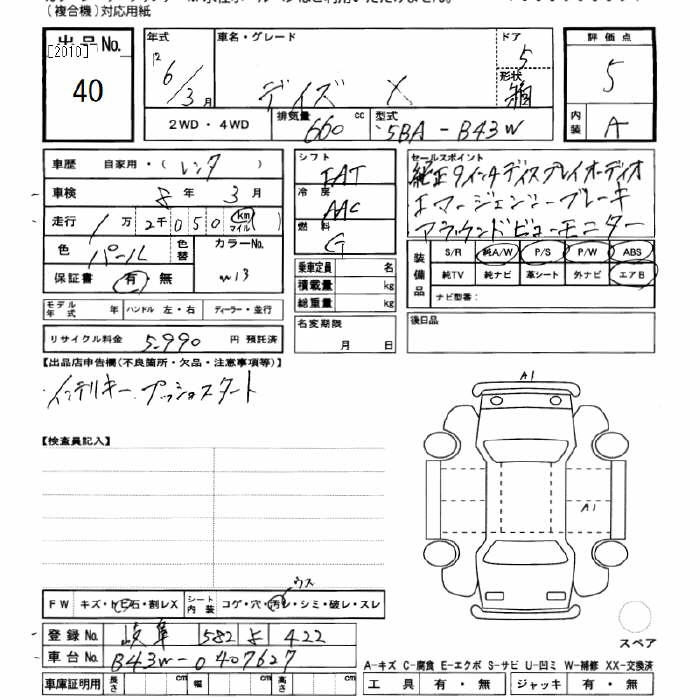 (複合機)対応用紙
出品No.
[2010]
40
年式
R6/3月
車名・グレード
デイズ X
ドア
5
形状
箱
評価点
5
内装
A
2WD・4WD
排気量 660 cc
型式 5BA-B43W
車歴 自家用・(レンタ)
車検 8年3月
走行 1万2千050km マイル ( )
色 パール 色替
カラーNo. W13
保証書 有・無
シフト
FAT
冷房
AAC
燃料
G
セールスポイント
純正9インチディスプレイオーディオ
エマージェンシーブレーキ
アラウンドビューモニター
装備品
S/R 純A/W P/S P/W ABS
純TV 純ナビ 革シート 外ナビ エアB
ナビ型番:
乗車定員 名
積載量 kg
総重量 kg
モデル年式 年 ハンドル 左・右 ディーラー・並行
リサイクル料金 5,990 円 預託済
名変期限
月 日
後日品
【出品店申告欄(不良箇所・欠品・注意事項等)】
・インテリキー プッシュスタート
【検査員記入】
A1
A1
スペア
ウス
FW キズ・トビ石・割レX シート内装 コゲ・穴・汚レ・シミ・破レ・スレ
登録No. 岐阜 582 よ 422
車台No. B43W-0407627
車庫証明用 長さ cm 幅 cm 高さ cm
A-キズ C-腐食 E-エクボ S-サビ U-凹ミ W-補修 XX-交換済
工具 有・無 ジャッキ 有・無